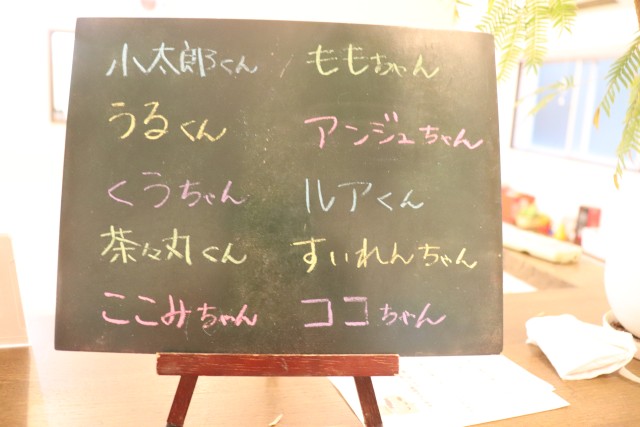 小太郎くん ももちゃん
うるくん アンジュちゃん
くうちゃん ルアくん
茶々丸くん すいれんちゃん
ここみちゃん ココちゃん